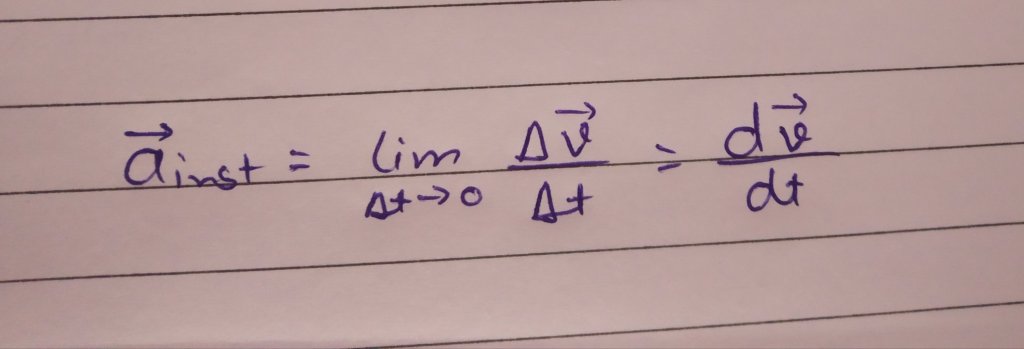 $\vec{a}_{inst} = \lim_{\Delta t \to 0} \frac{\Delta \vec{v}}{\Delta t} = \frac{d\vec{v}}{dt}$